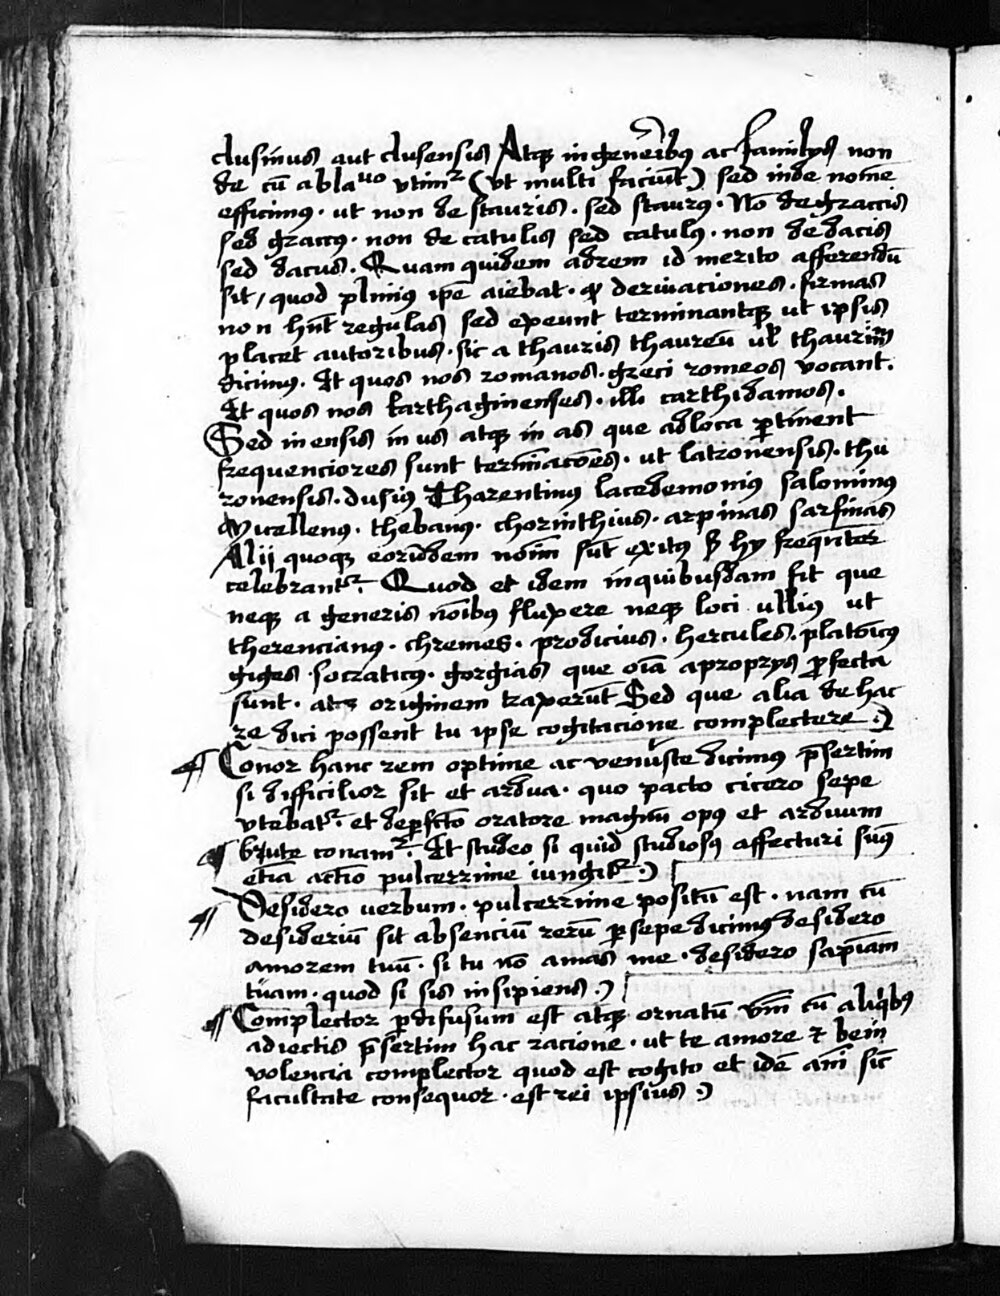 clusinus aut clusensis Atqꝫ in gen̄eribꝯ ac familÿs non
de cū ablaᵘᵒ vtimᷣ (vt multi faciūt) sed inde nomē
efficimꝯ · ut non de stauris · sed staurꝯ · Nō de graccis
sed graccꝯ · non de catulis sed catulꝯ · non de dacis
sed dacus · Quam quidem ad rem id merito afferendū
sit / quod plinius ip̄e aiebat · ꝙ deriuaciones · firmas
non hn̄t regulas sed exeunt terminantqꝫ ut ipsis
placet autoribus · sic a thauris thaureū ul̓ thaurinū
dicimꝯ · Et quos nos romanos · greci romeos vocant ·
Et quos nos karthaginenses · illi carthidamos ·
Sed in ensis in us atqꝫ in as que ad loca ꝑtinent
frequenciores sunt termīacōes · ut latronensis · thu
ronensis · dusiꝯ Tharentinꝯ lacedemoniꝯ saloninꝯ
vucellenꝯ · thebanꝯ · chorinthius · arpinas sarsinas
Alij quoqꝫ eoriddem noīm sūt exitꝯ sꝫ hy freqn̄ter
celebrantᷣ · Quod et idem in quibusdam fit que
neqꝫ a generis nōibꝯ fluxere neqꝫ loci ulliꝯ ut
therencianꝯ · chremes · prodicius · hercules · platoīcꝯ
giges · socraticꝯ · gorgias que oīa a propryꝯ ꝓfecta
sunt · atqꝫ originem traxerūt Sed que alia de hac
re dici possent tu ipse cogitacione complectere ·)
¶ Conor hanc rem optime ac venuste dicimꝯ p̄sertim
si difficilior sit et ardua · quo pacto cicero sepe
vtebatᷣ · et de ꝑfcto oratore magnū opꝯ et arduum
¶ brute conamᷣ · Et studeo si quid studiosꝯ affecturi sumꝯ
etīa actio pulcerrime iungitᷣ ·)
¶ Desidero uerbum · pulcerrime positū est · nam cū
desideriū sit absenciū rerū ꝑsepe dicimꝯ desidero
amorem tuū · si tu nō amas me · desidero sapīam
tuam · quod si sis insipiens ·)
¶ Complector ꝑdifusum est atqꝫ ornatū vm̄ cū aliqbꝯ
adiectis p̄sertim hac racione · ut te amore ⁊ beni
volencia complector quod est cogito et idē anī sic̄
facultate consequor · est rei ipsius ·)